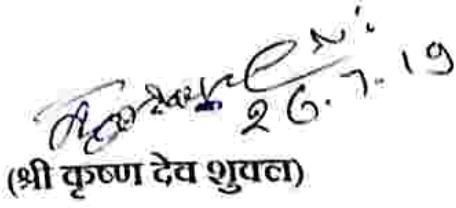 26.7.19
(श्री कृष्ण देव शुक्ल)